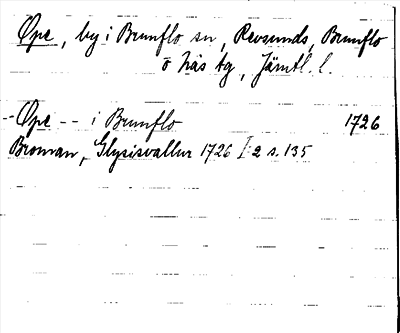 Ope, by i Brunflo sn, Revsunds, Brunflo
o Näs tg, Jämtl. l.
-- Ope -- i Brunflo 1726
Broman, Glysisvallur 1726 I:2 s. 135